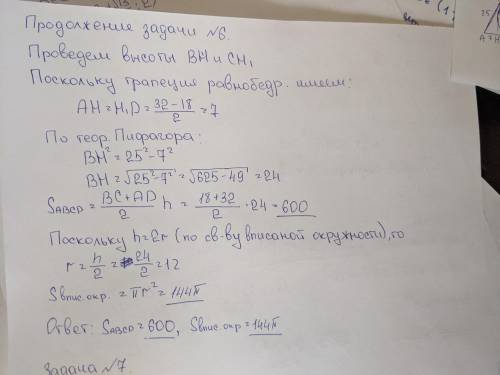 Продолжение задачи №6.
Проведем высоты BH и CH₁
Поскольку трапеция равнобедр. имеем:
AH = H₁D = (32-18)/2 = 7
По теор. Пифагора:
BH² = 25² - 7²
BH = √(25² - 7²) = √(625 - 49) = 24
S_ABCD = (BC + AD)/2 h = (18 + 32)/2 · 24 = 600
Поскольку h = 2r (по св-ву вписаной окружности), то
r = h/2 = 24/2 = 12
Sвпис. окр. = πr² = 144π
Ответ: S_ABCD = 600, Sвпис. окр = 144π
Задача №7.
25
A 7 H